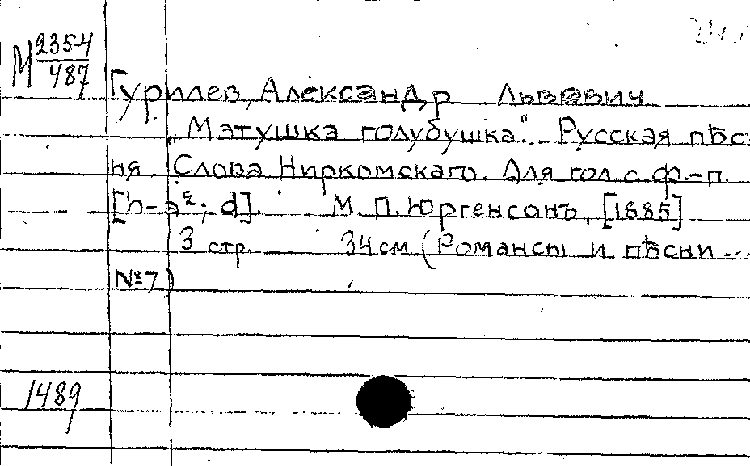 М 2354/487
Гурилев, Александр Львович
„Матушка голубушка". Русская пѣс-
ня. Слова Ниркомскаго. Для гол. с ф.-п.
[h-a²; d]. М. П. Юргенсонъ, [1885]
3 стр. 34 см (Романсы и пѣсни ...
№ 7)
1489